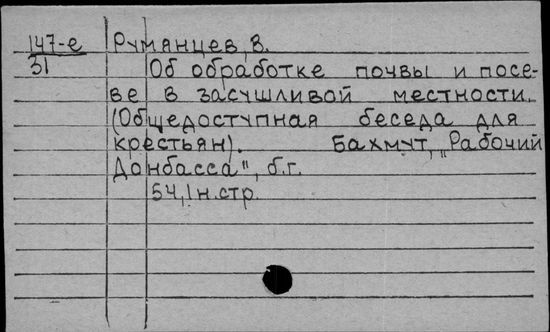 147-е Румянцев, В.
31 Об обработке почвы и посе-
ве в засушливой местности.
(Общедоступная беседа для
крестьян). Бахмут, „Рабочий
Донбасса", б.г.
54, 1 н.стр.